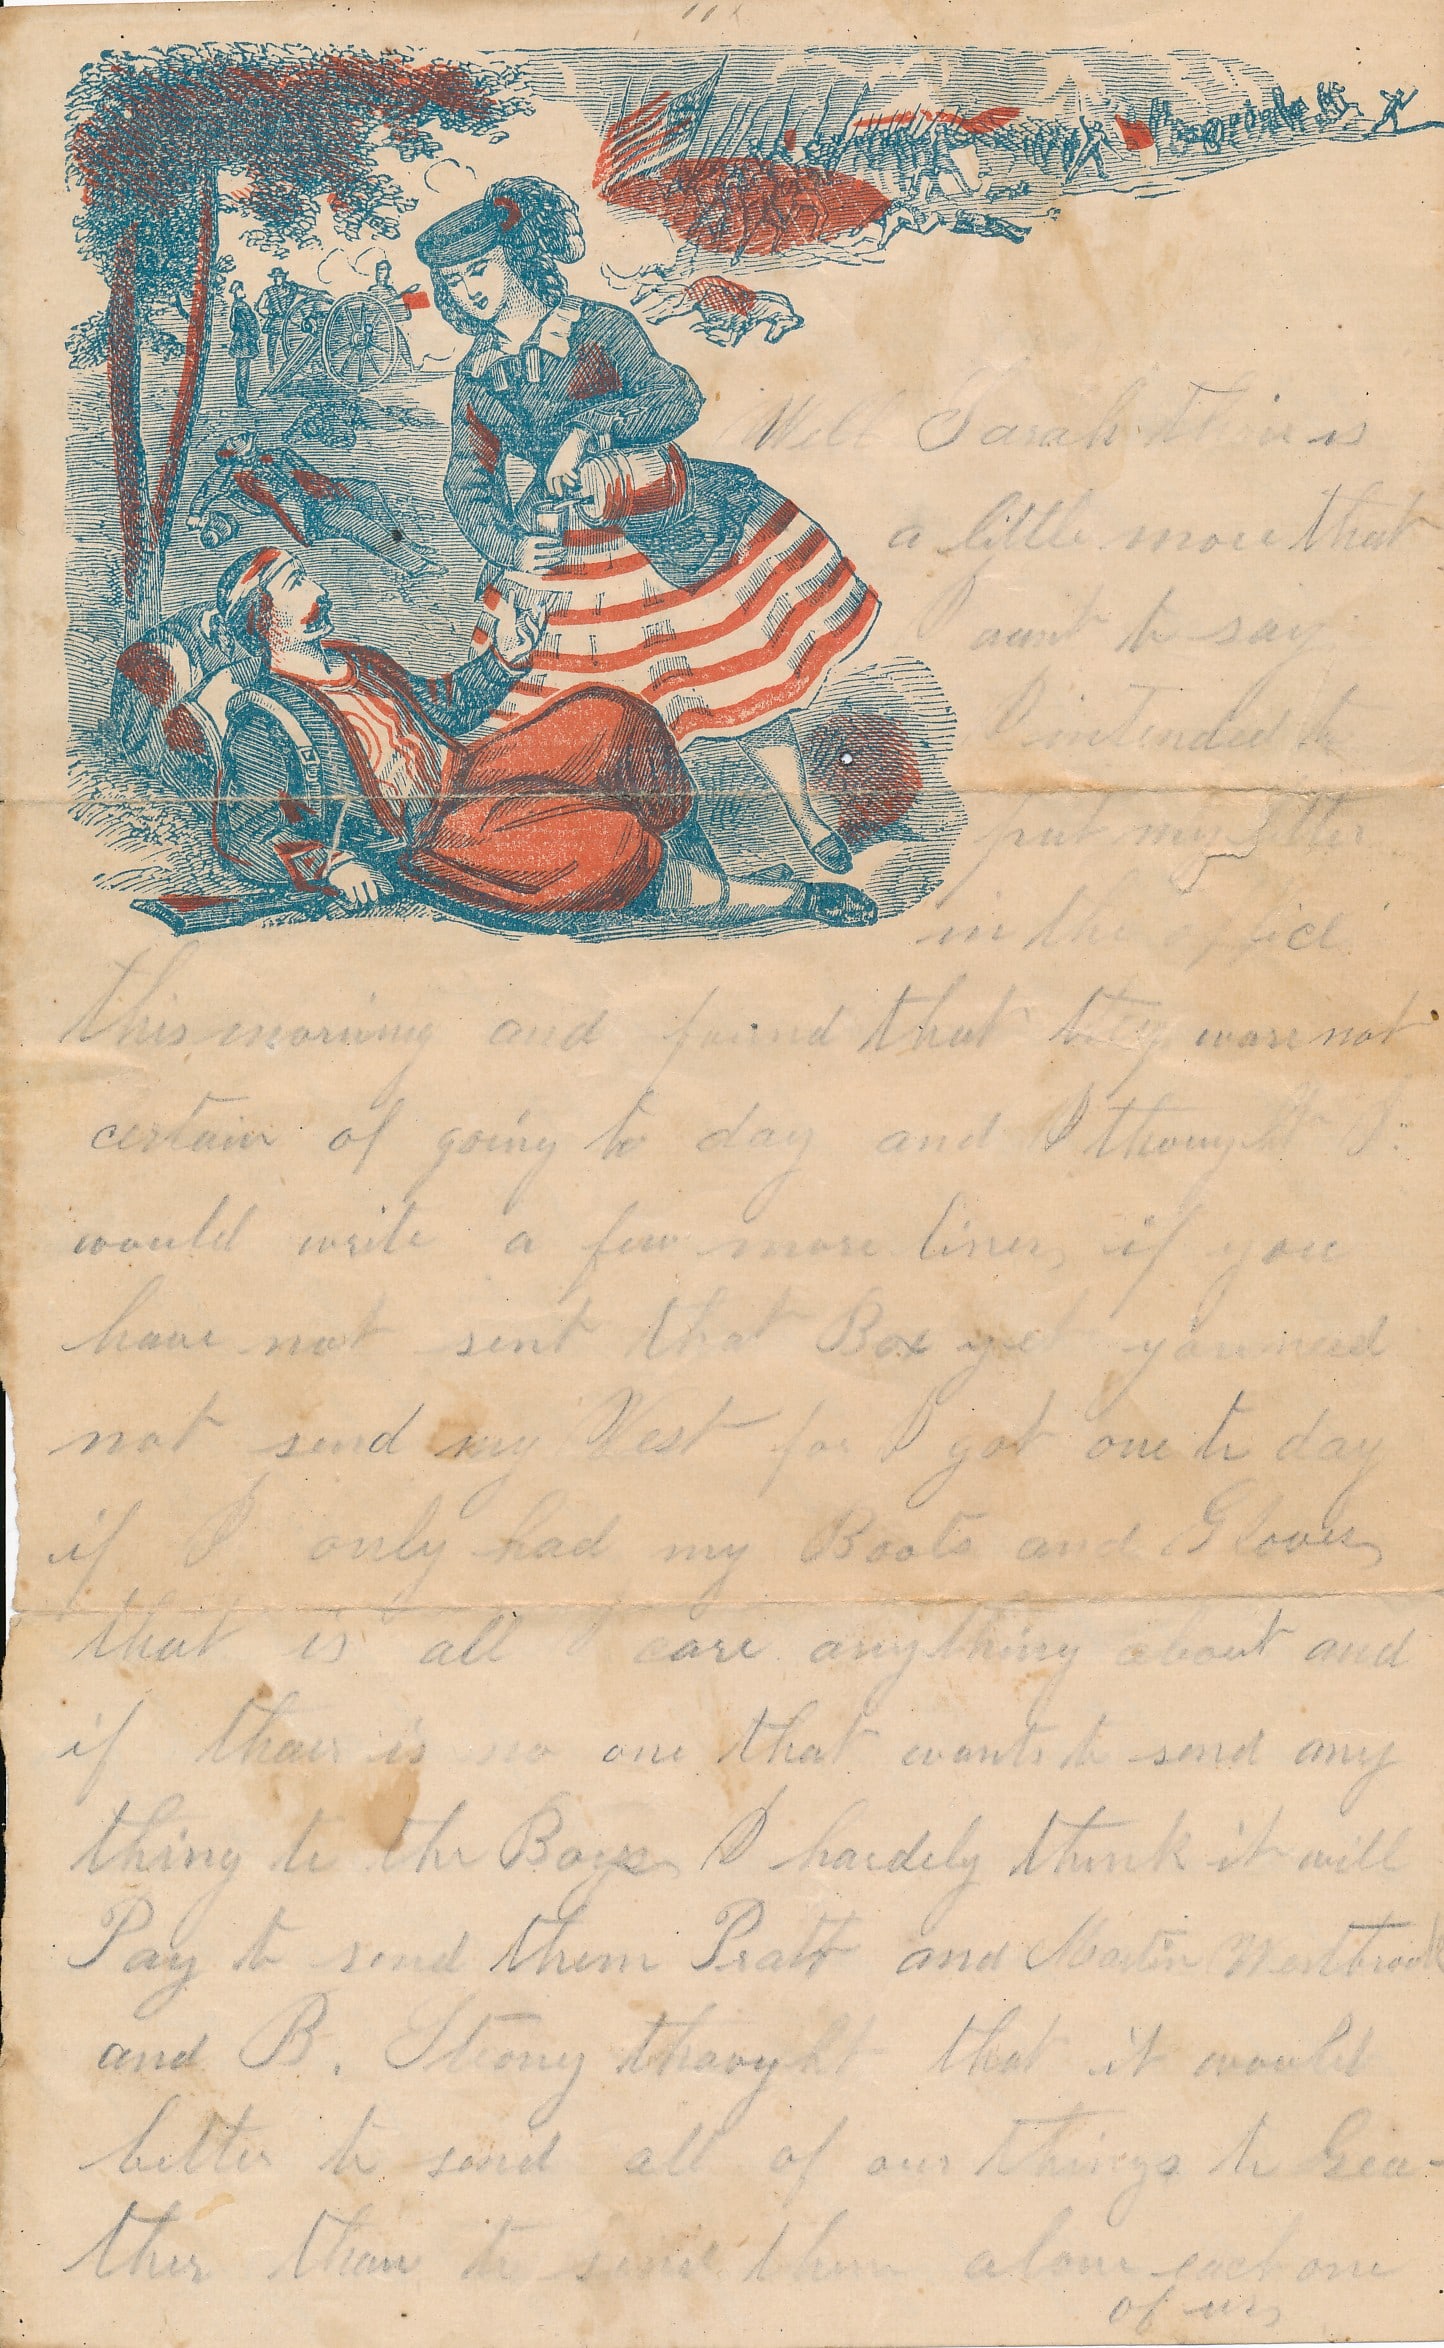 Well Sarah thair is
a little more that
I want to say
I intended to
put my letter
in the office
this morning and found that they ware not
certain of going to day and I thought I
would write a few more lines, if you
have not sent that Box yet you need
not send my Vest for I got one to day
if I only had my Boots and Gloves
that is all I care anything about and
if thair is no one that wants to send any
thing to the Boys I hardely think it will
Pay to send them Pratt and Martin Westbrook
and B. Strong thought that it would
better to send all of our things to Gea-
ther than to send them alone each one
of us,